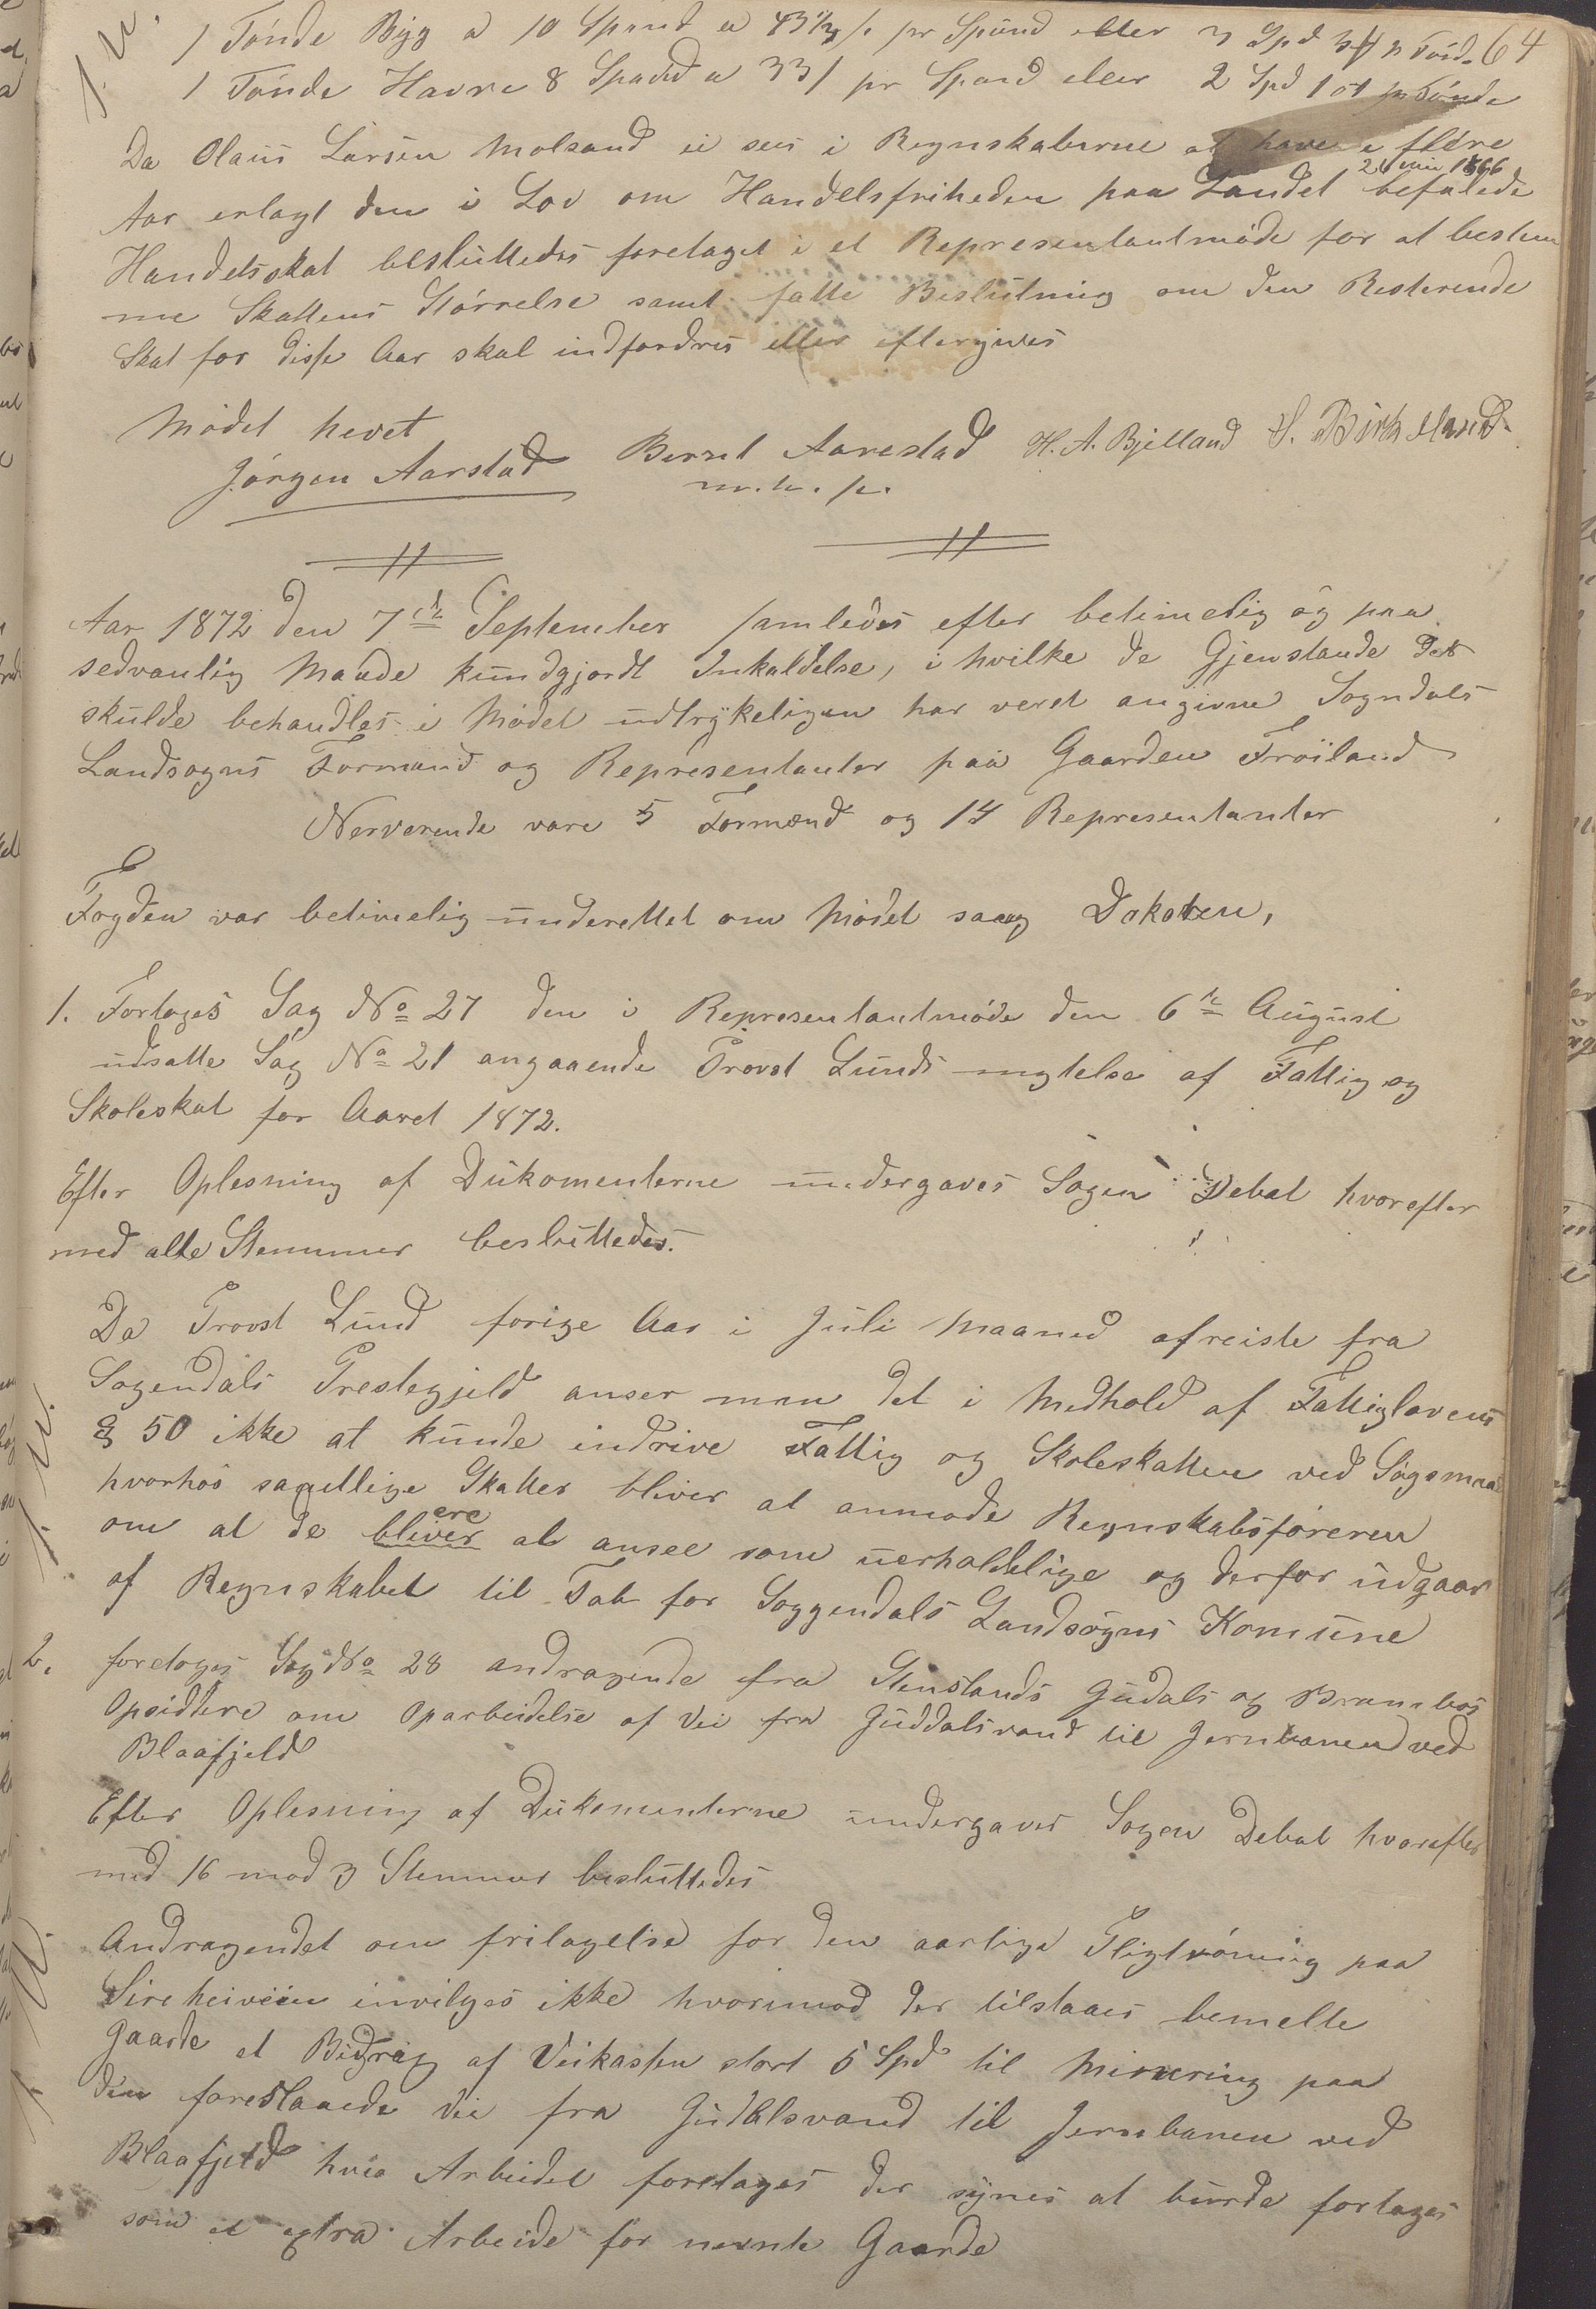 64
1 Tønde Byg a 10 Spand a 43 1/2 s. pr Spand eller 3 Spd
1 Tønde Havre 8 Spand a 33 s pr Spand eller 2 Spd 1 ort pr Tønde
Da Olaus Larsen Molsand ei sees i Regnskaberne at have i flere
26 Mai 1866
Aar erlagt den i Lov om Handelsfriheden paa Landet befalede
Handelsskat besluttedes foretaget i et Representantmøde for at bestem
me Skattens Størrelse samt fatte Beslutning om den Resterende
Skat for disse Aar skal indfordres eller eftergives
Mødet hevet
Jørgen Aarstad Berent Aarestad H. A. Bjelland S. Birkeland
m. h. p.
Aar 1872 den 7de September samledes efter betimelig og paa
sedvanlig Maade kundgjordt Inkaldelse, i hvilke de Gjenstande der
skulde behandles i Mødet udtrykeligen har veret angivne Sogndals
Landsogns Formænd og Representanter paa Gaarden Frøiland
Nerverende vare 5 Formænd og 14 Representanter
Fogden var betimelig underettet om Mødet saag Doktoren,
1. Fortages Sag No 27 den i Representantmøde den 6te August
udsatte Sag No 21 angaaende Provst Lunds negtelse af Fattig og
Skoleskat for Aaret 1872.
Efter Oplesning af Dukomenterne undergaves Sagen Debat hvorefter
med alle Stemmer besluttedes.
Da Provst Lund forige Aar i Juli Maaned afreiste fra
Sogendals Prestegjeld anser man det i Medhold af Fattiglovens
§ 50 ikke at kunde indrive Fattig og Skoleskatten ved Søgsmaal
hvorhos samtlige Skatter bliver at anmode Regnskabsføreren
ere
om at de bliver at ansee som uerholdelige og derfor udgaar
af Regnskabet til Tab for Soggendals Landsogns Komune
2. foretoges Sag No 28 andragende fra Stenslands Gudals og
Opsidtere om Oparbeidelse af Vei fra Guddalsvand til Jernbanen ved
Blaafjeld
Efter Oplesning af Dukomenterne undergaves Sagen Debat hvorefter
med 16 mod 3 Stemmer besluttedes
Andragendet om fritagelse for den aarlige Pligtrøning paa
Sireheiveien invilges ikke hvorimod der tilstaaes bemelte
Gaarde et Bidrag af Veikassen stort 5 Spd til Minering paa
den foreslaaede Vei fra Gudalsvand til Jernbanen ved
Blaafjeld hvis Arbeidet foretages der synes at burde fortages
som et extra Arbeide for nevnte Gaarde